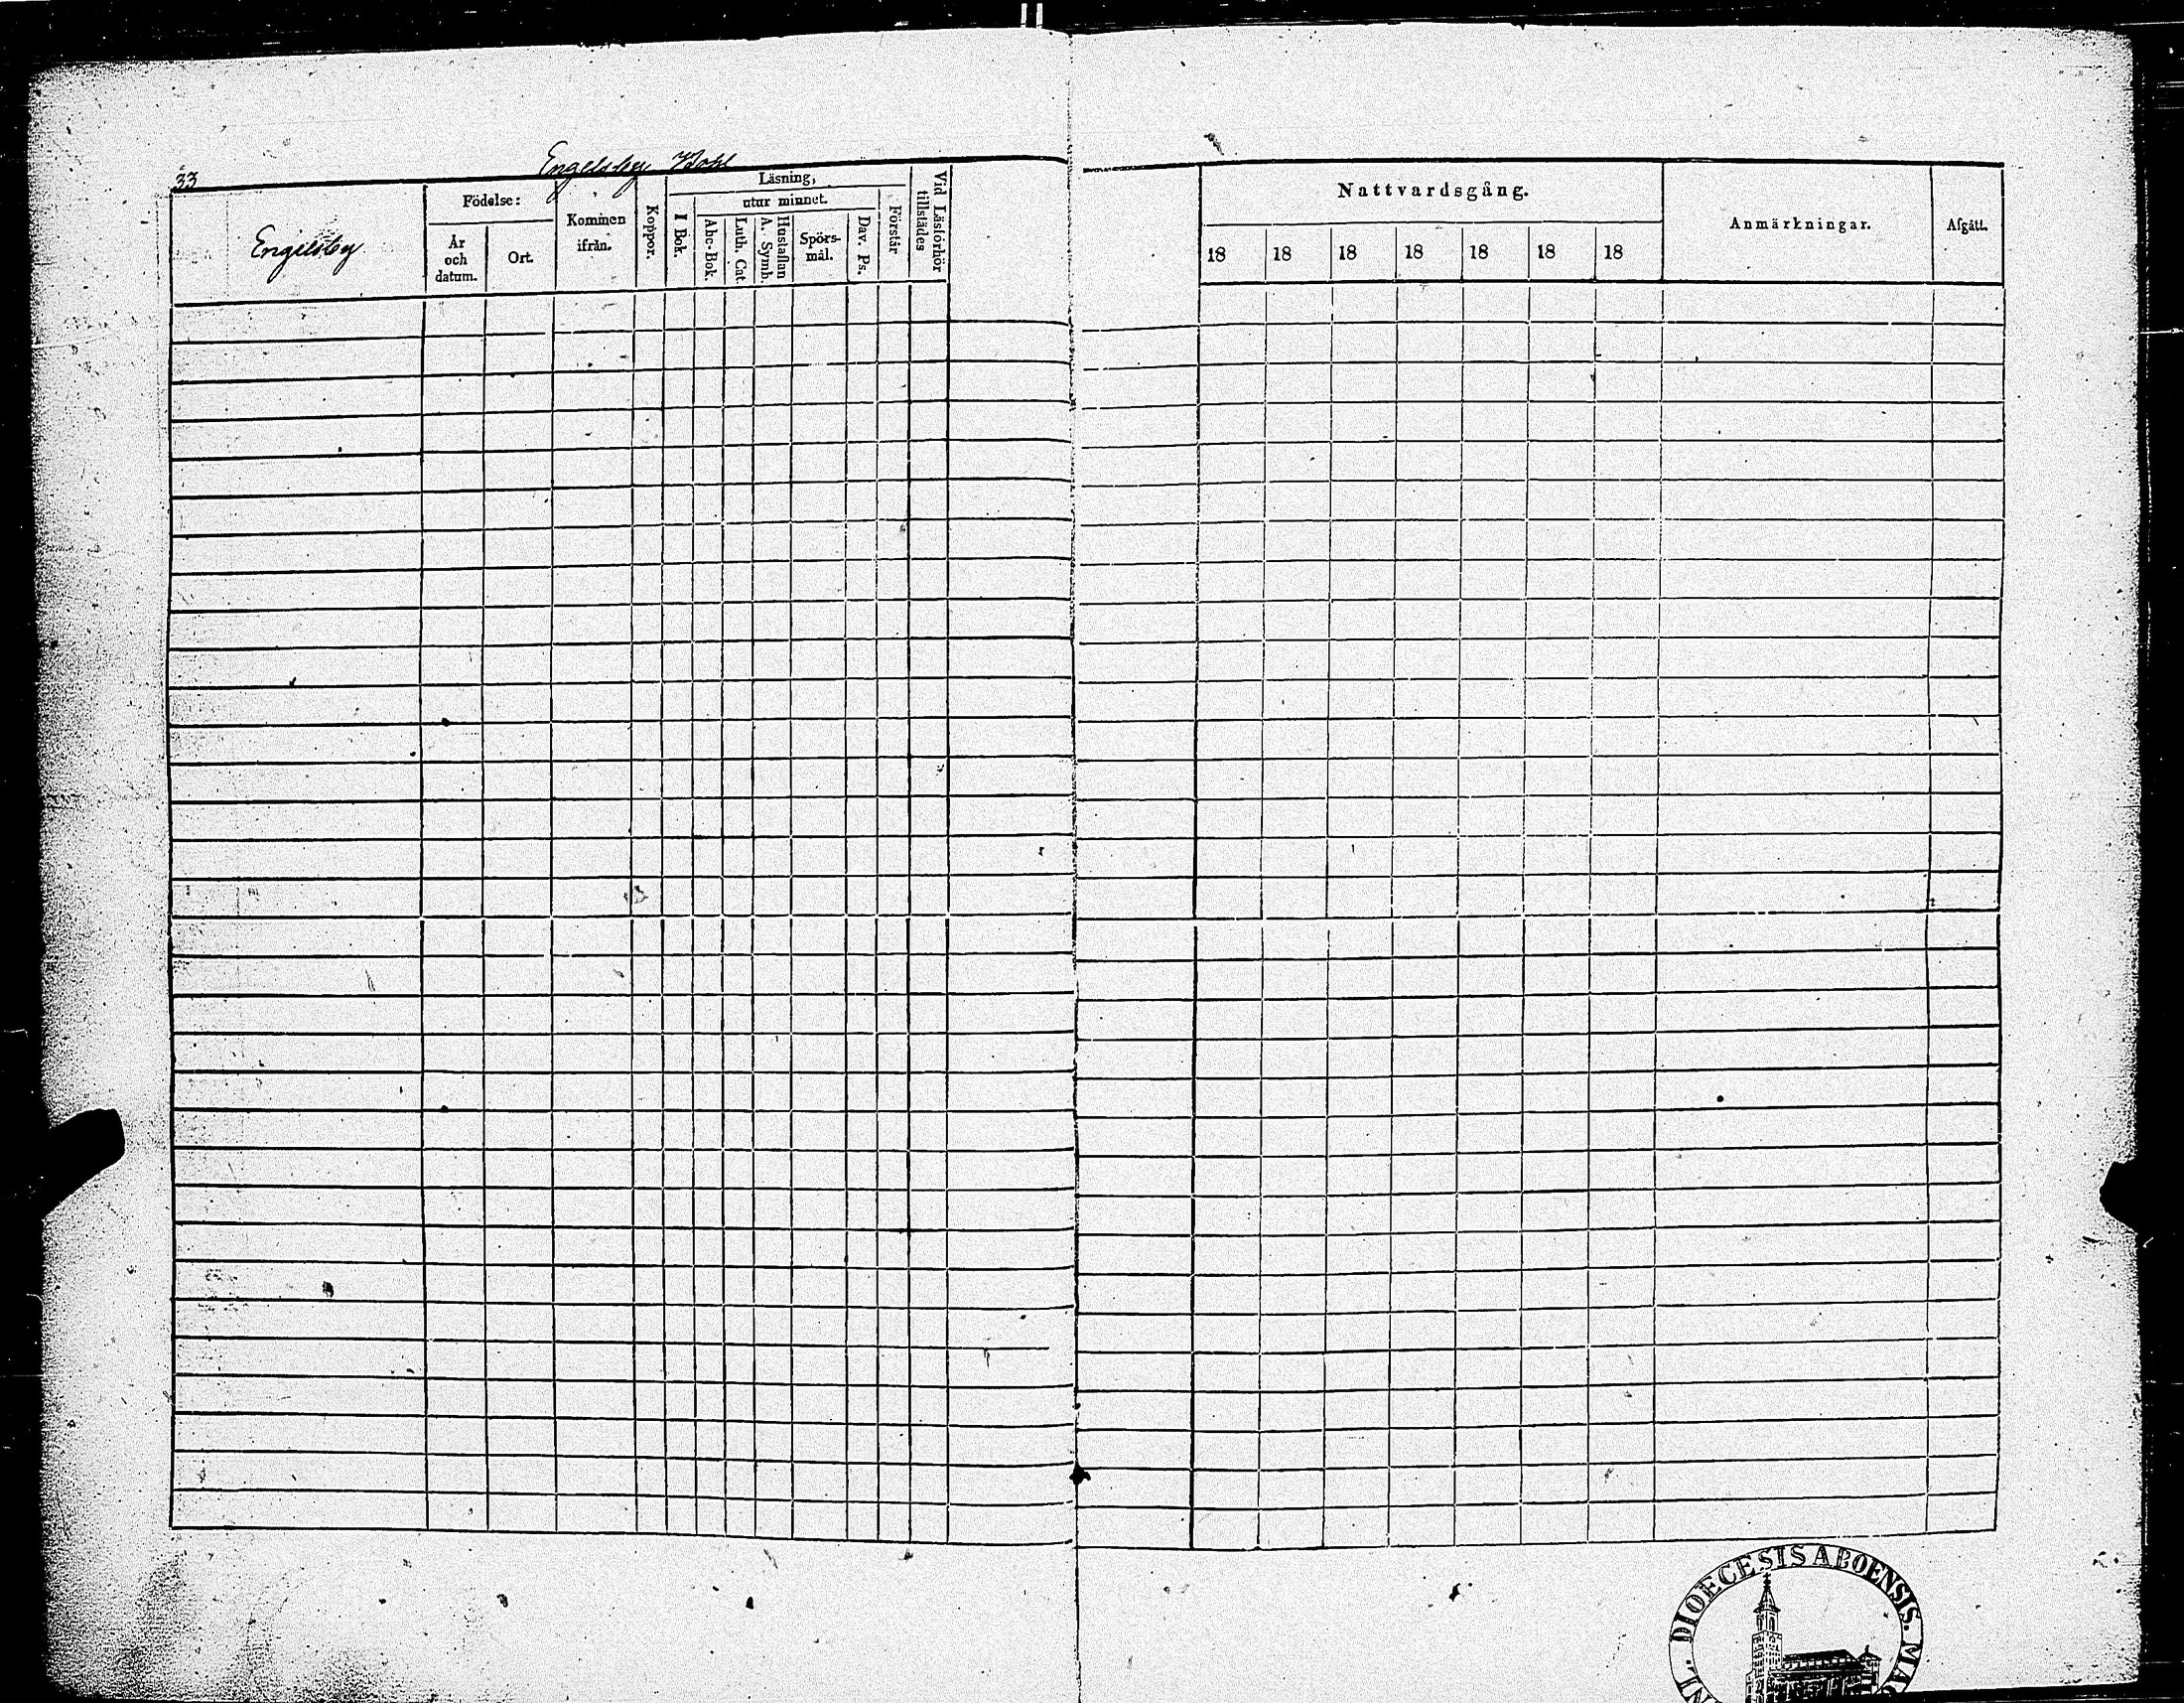 33
Engelsby Bohl
Engelsby
Födelse:
År och datum.
Ort.
Kommen ifrån.
Koppor.
Läsning,
utur minnet.
I Bok.
Abc-Bok.
Luth. Cat.
A. Symb.
Hustaflan
Spörs-mål.
Dav. Ps.
Förstår
Vid Läsförhör tillstädes
Nattvardsgång.
18 18 18 18 18 18 18
Anmärkningar.
Afgått.
DIOECESIS ABOENSIS.